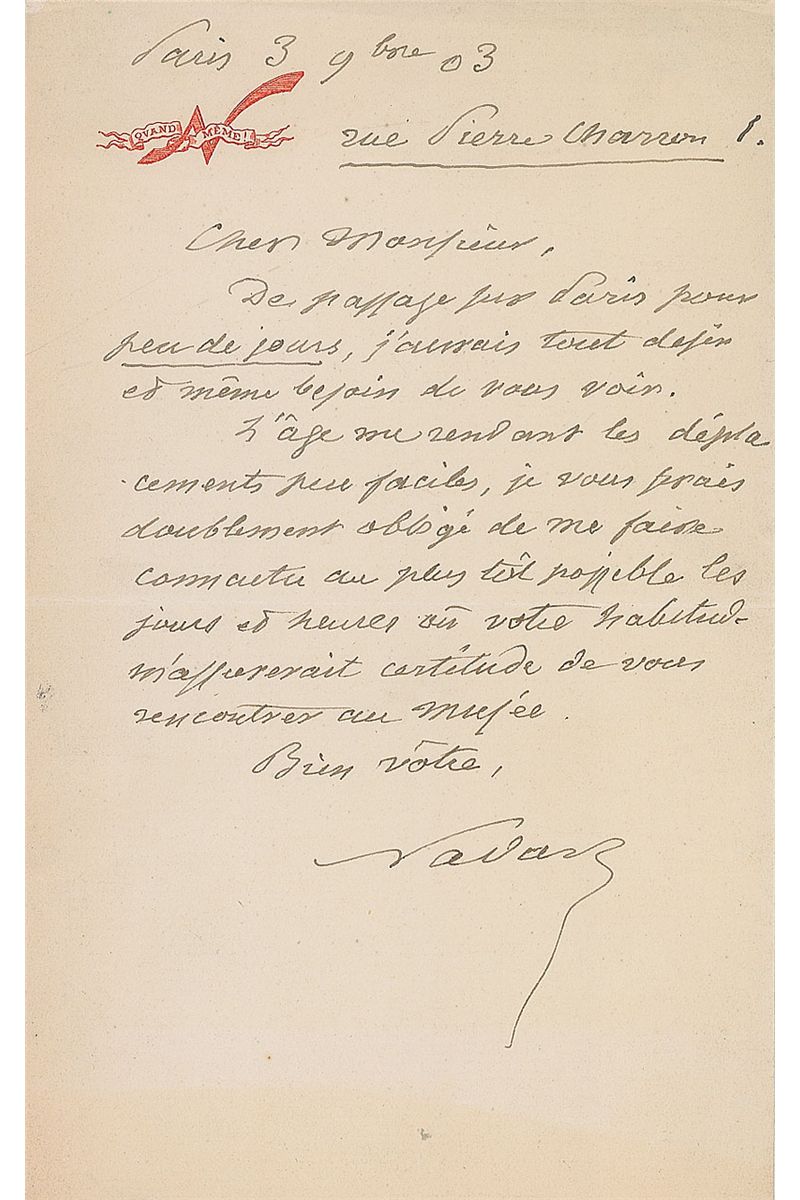 Paris 3 9bre 03
QUAND MÊME!
rue Pierre Charron 1.
Cher Monsieur,
De passage sur Paris pour
peu de jours, j'aurais tout désir
et même besoin de vous voir.
L'âge me rendant les dépla
cements peu faciles, je vous serais
doublement obligé de me faire
connaître au plus tôt possible les
jours et heures où votre habitude
m'assurerait certitude de vous
rencontrer au musée.
Bien vôtre,
Nadar